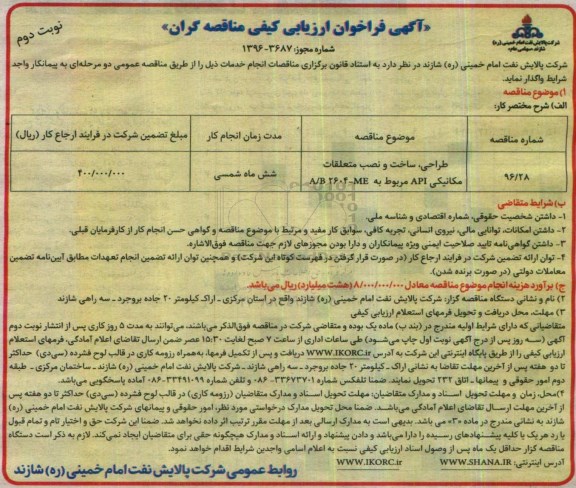 «آگهی فراخوان ارزیابی کیفی مناقصه گران»
نوبت دوم
شماره مجوز: ۱۳۹۶-۳۶۸۷
شرکت پالایش نفت امام خمینی (ره)
شازند «سهامی عام»
شرکت پالایش نفت امام خمینی (ره) شازند در نظر دارد به استناد قانون برگزاری مناقصات انجام خدمات ذیل را از طریق مناقصه عمومی دو مرحله‌ای به پیمانکار واجد
شرایط واگذار نماید.
۱) موضوع مناقصه
الف) شرح مختصر کار:
شماره مناقصه	موضوع مناقصه	مدت زمان انجام کار	مبلغ تضمین شرکت در فرایند ارجاع کار (ریال)
۹۶/۲۸	طراحی، ساخت و نصب متعلقات	شش ماه شمسی	۴۰۰/۰۰۰/۰۰۰
مکانیکی API مربوط به A/B ۲۶۰۴-ME
ب) شرایط متقاضی
۱- داشتن شخصیت حقوقی، شماره اقتصادی و شناسه ملی.
۲- داشتن امکانات، توانایی مالی، نیروی انسانی، تجربه کافی، سوابق کار مفید و مرتبط با موضوع مناقصه و گواهی حسن انجام کار از کارفرمایان قبلی.
۳- داشتن گواهی‌نامه تایید صلاحیت ایمنی ویژه پیمانکاران و دارا بودن مجوزهای لازم جهت مناقصه فوق‌الاشاره.
۴- توان ارائه تضمین شرکت در فرایند ارجاع کار (در صورت قرار گرفتن در فهرست کوتاه این شرکت) و همچنین توان ارائه تضمین انجام تعهدات مطابق آیین‌نامه تضمین
معاملات دولتی (در صورت برنده شدن).
ج) برآورد هزینه انجام موضوع مناقصه معادل ۸/۰۰۰/۰۰۰/۰۰۰ (هشت میلیارد) ریال می‌باشد.
۲) نام و نشانی دستگاه مناقصه گزار: شرکت پالایش نفت امام خمینی (ره) شازند واقع در استان مرکزی ـ اراک، کیلومتر ۲۰ جاده بروجرد ـ سه راهی شازند
۳) مهلت، محل دریافت و تحویل فرمهای استعلام ارزیابی کیفی
متقاضیانی که دارای شرایط اولیه مندرج در (بند ب) ماده یک بوده و متقاضی شرکت در مناقصه فوق‌الذکر می‌باشند، می‌توانند به مدت ۵ روز کاری پس از انتشار نوبت دوم
آگهی (سه روز پس از درج آگهی نوبت اول چاپ می‌شود) طی ساعات اداری از ساعت ۷ صبح لغایت ۱۵:۳۰ عصر ضمن ارسال تقاضای اعلام آمادگی، فرمهای استعلام
ارزیابی کیفی را از طریق پایگاه اینترنتی این شرکت به آدرس WWW.IKORC.ir دریافت و پس از تکمیل فرمها، به‌همراه رزومه کاری در قالب لوح فشرده (سی‌دی) حداکثر
تا دو هفته پس از آخرین مهلت تقاضا به نشانی اراک ـ کیلومتر ۲۰ جاده بروجرد ـ سه راهی شازند ـ شرکت پالایش نفت امام خمینی (ره) شازند ـ ساختمان مرکزی ـ طبقه
دوم امور حقوقی و پیمانها ـ اتاق ۲۳۲ تحویل نمایند. ضمنا تلفکس شماره ۳۳۶۷۳۷۰۱-۰۸۶ و تلفن شماره ۳۳۴۹۱۰۹۹-۰۸۶ آماده پاسخگویی می‌باشد.
۴) محل، زمان و مهلت تحویل اسناد و مدارک متقاضیان: مهلت تحویل اسناد و مدارک متقاضیان (رزومه کاری) در قالب لوح فشرده (سی‌دی) حداکثر تا دو هفته پس
از آخرین مهلت ارسال تقاضای اعلام آمادگی می‌باشد. ضمنا محل تحویل مدارک درخواستی مورد نظر، امور حقوقی و پیمانهای شرکت پالایش نفت امام خمینی (ره)
شازند به نشانی مندرج در ماده «۳» می باشد. بدیهی است به مدارک ارسالی بعد از مهلت مقرر ترتیب اثر داده نخواهد شد. ضمنا این شرکت حق و اختیار تام و تمام قبول
یا رد هر یک یا کلیه پیشنهادهای رسیده را دارا می‌باشد و دادن پیشنهاد و ارائه اسناد و مدارک هیچگونه حقی برای متقاضیان ایجاد نمی‌کند. لازم به ذکر است دستگاه
مناقصه گزار حداقل یک ماه پس از وصول اسناد ارزیابی کیفی نسبت به اعلام اسامی واجدین شرایط اقدام خواهد نمود.
آدرس اینترنتی: WWW.SHANA.IR WWW.IKORC.ir
روابط عمومی شرکت پالایش نفت امام خمینی (ره) شازند